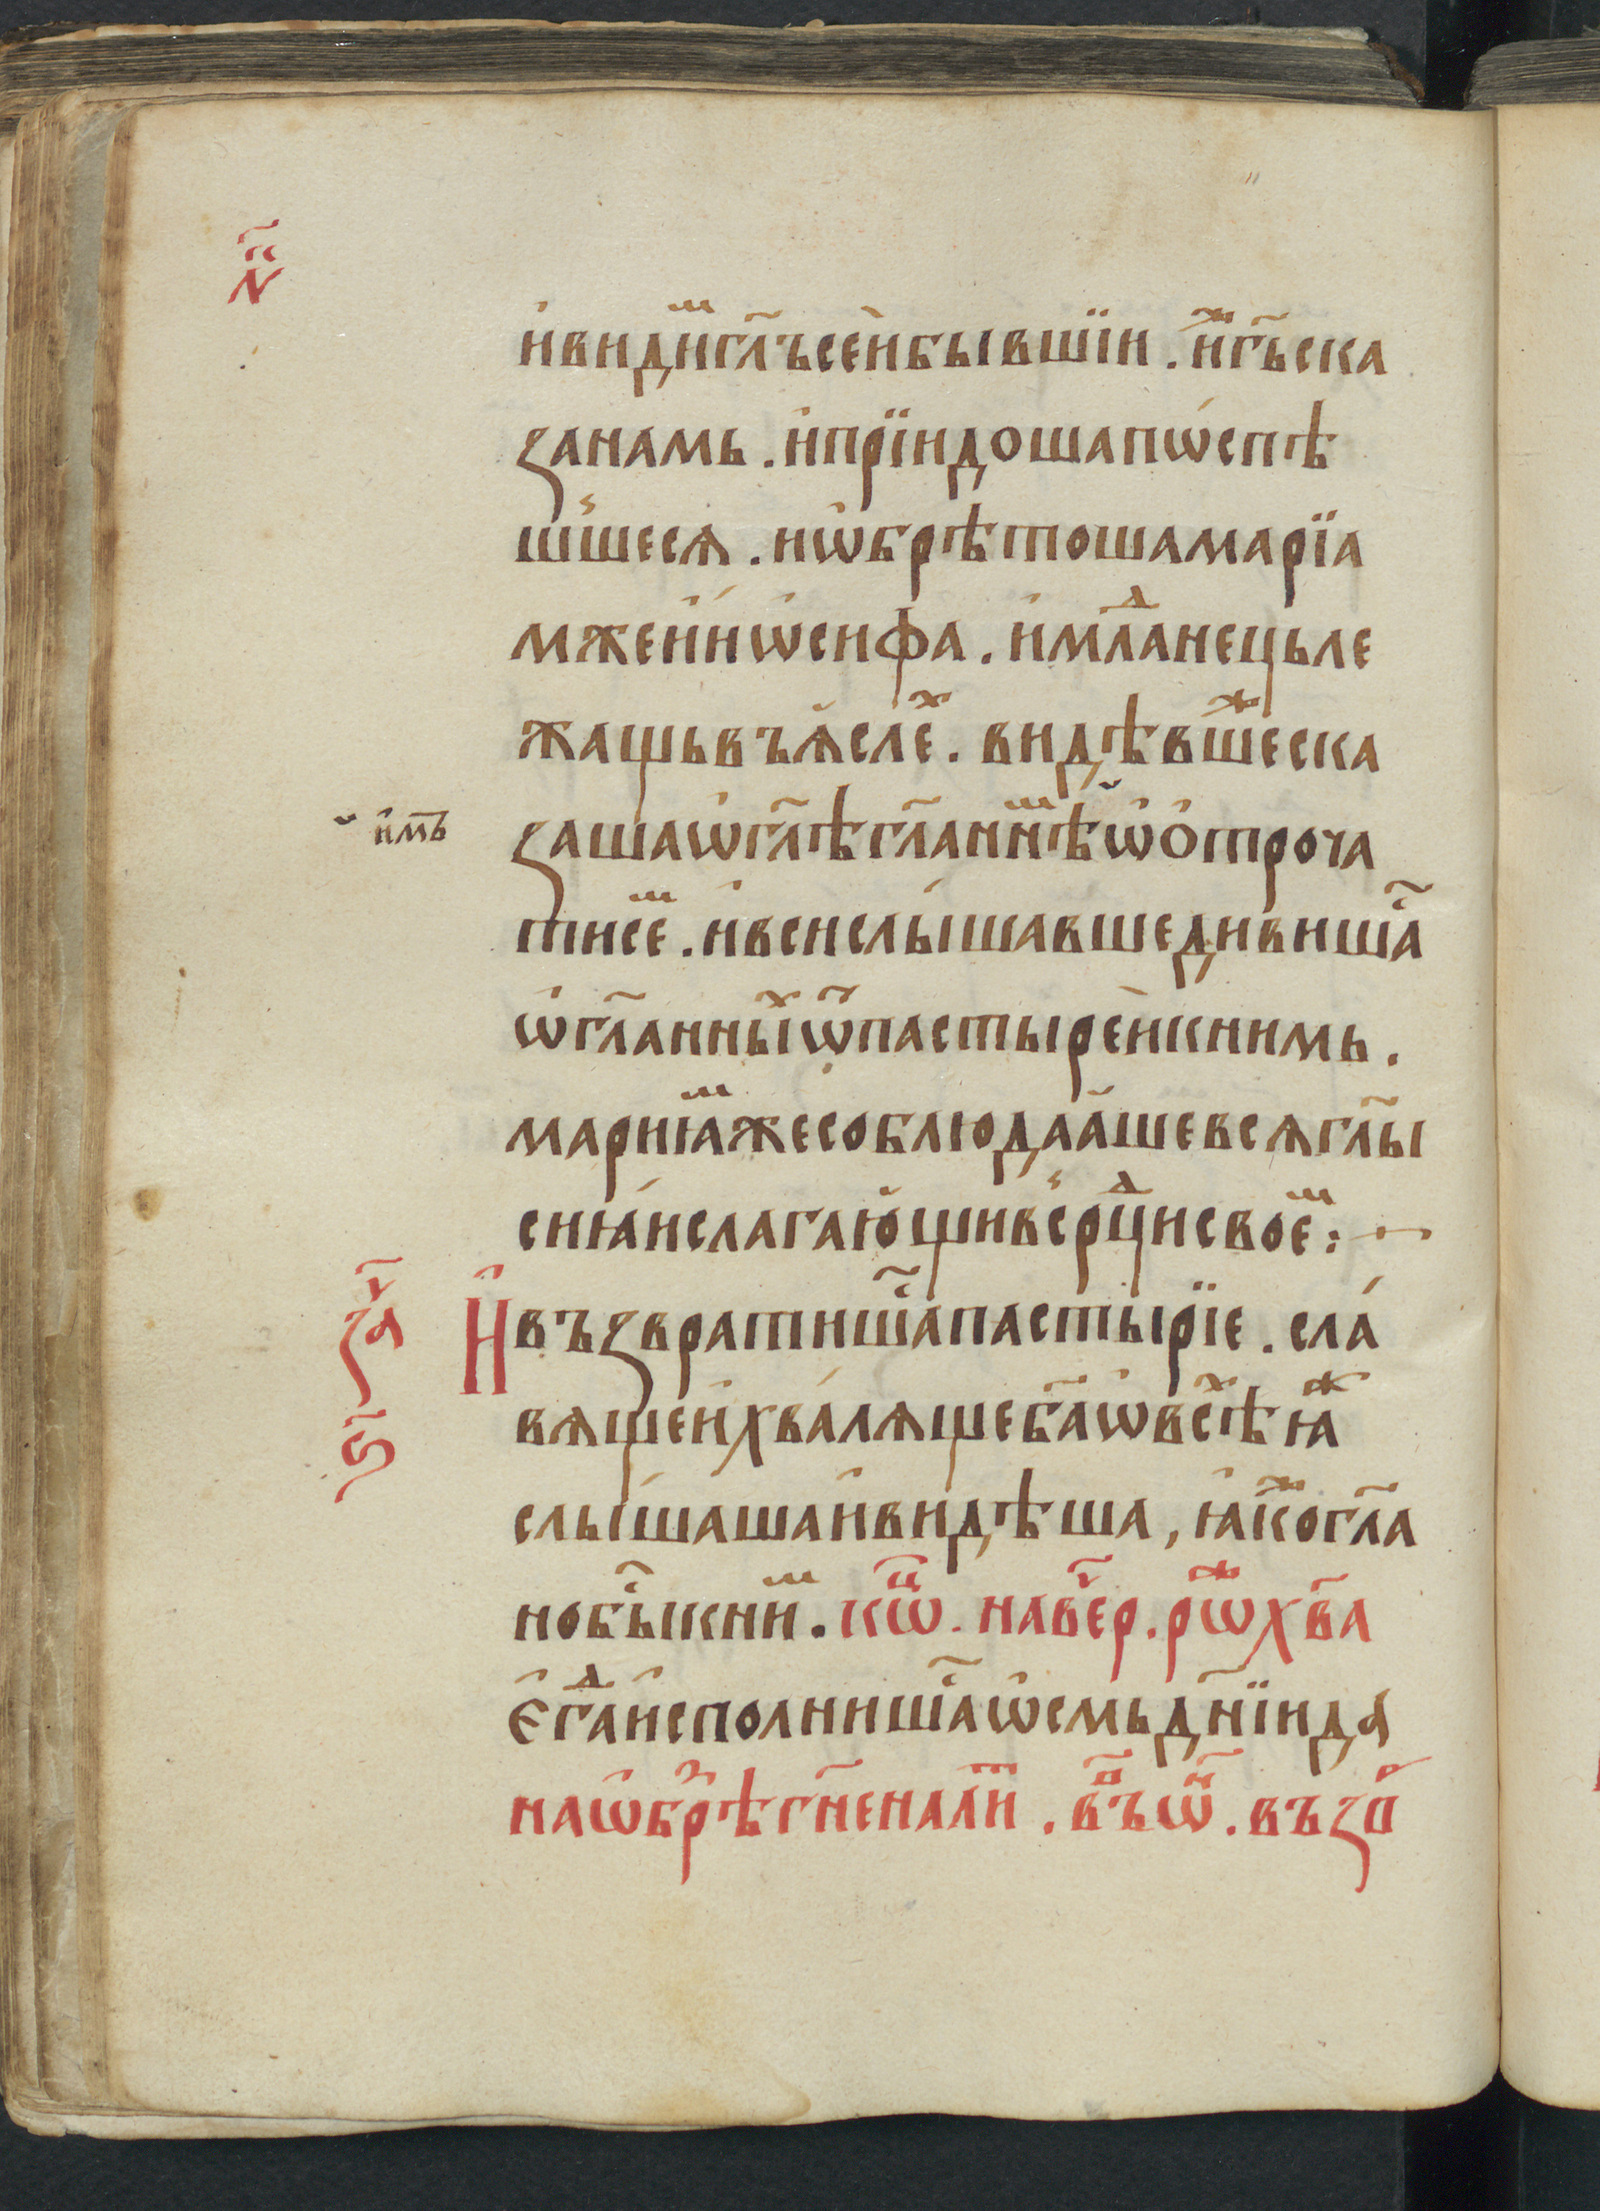 н҃
и҆види́мъ гл҃ъ се́и бы́вшїи . и҆́же гь҃ ска
за намь . и҆прїидоша пѡ́спѣ
ши́шеся . и ѡ҆брѣтоша марїа
мже и҆ и҆ѡсифа . и҆ млⷣанець ле
жащь въ я҆слеⷯ . видѣвшеⷤ ска
заша ѡ҆ гл҃ѣ гл҃аннѣⷨ ѡ҆ ѻ҆троча
и҆мъ
ти сеⷨ . и҆ вси слы́шавше дивишаⷭ
ѡ҆ гл҃анныⷯ ѿ пастыре́и к нимь .
марїа́мже соблюда́аше вся гл҃ы
сиꙗ́ и слага́ющи в срⷣци своеⷨ :
за҃ч
И҆ възвратишаⷭ пастырїе . сла́
вяще и҆ хва́ляще бг҃а ѡ҆ всѣⷯ ꙗ҆ⷤ
ѕ҃
слы́шаша и҆ видѣша , ꙗ҆́коⷤ гл҃а
но быⷭ к ниⷨ . кѡⷩ҇ . на веⷱ҇р . рѡⷤ хв҃а
є҆гⷣа и҆сполнишаⷭ ѡ҆смь дн҃їи да
на ѡ҆брѣⷥ гн҃е на лиⷮ . въⷩ ѿ . въ заⷱ